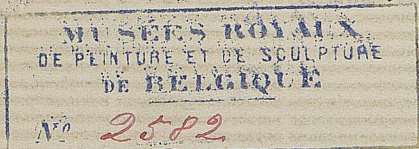 MUSÉES ROYAUX
DE PEINTURE ET DE SCULPTURE
DE BELGIQUE
Nº 2582